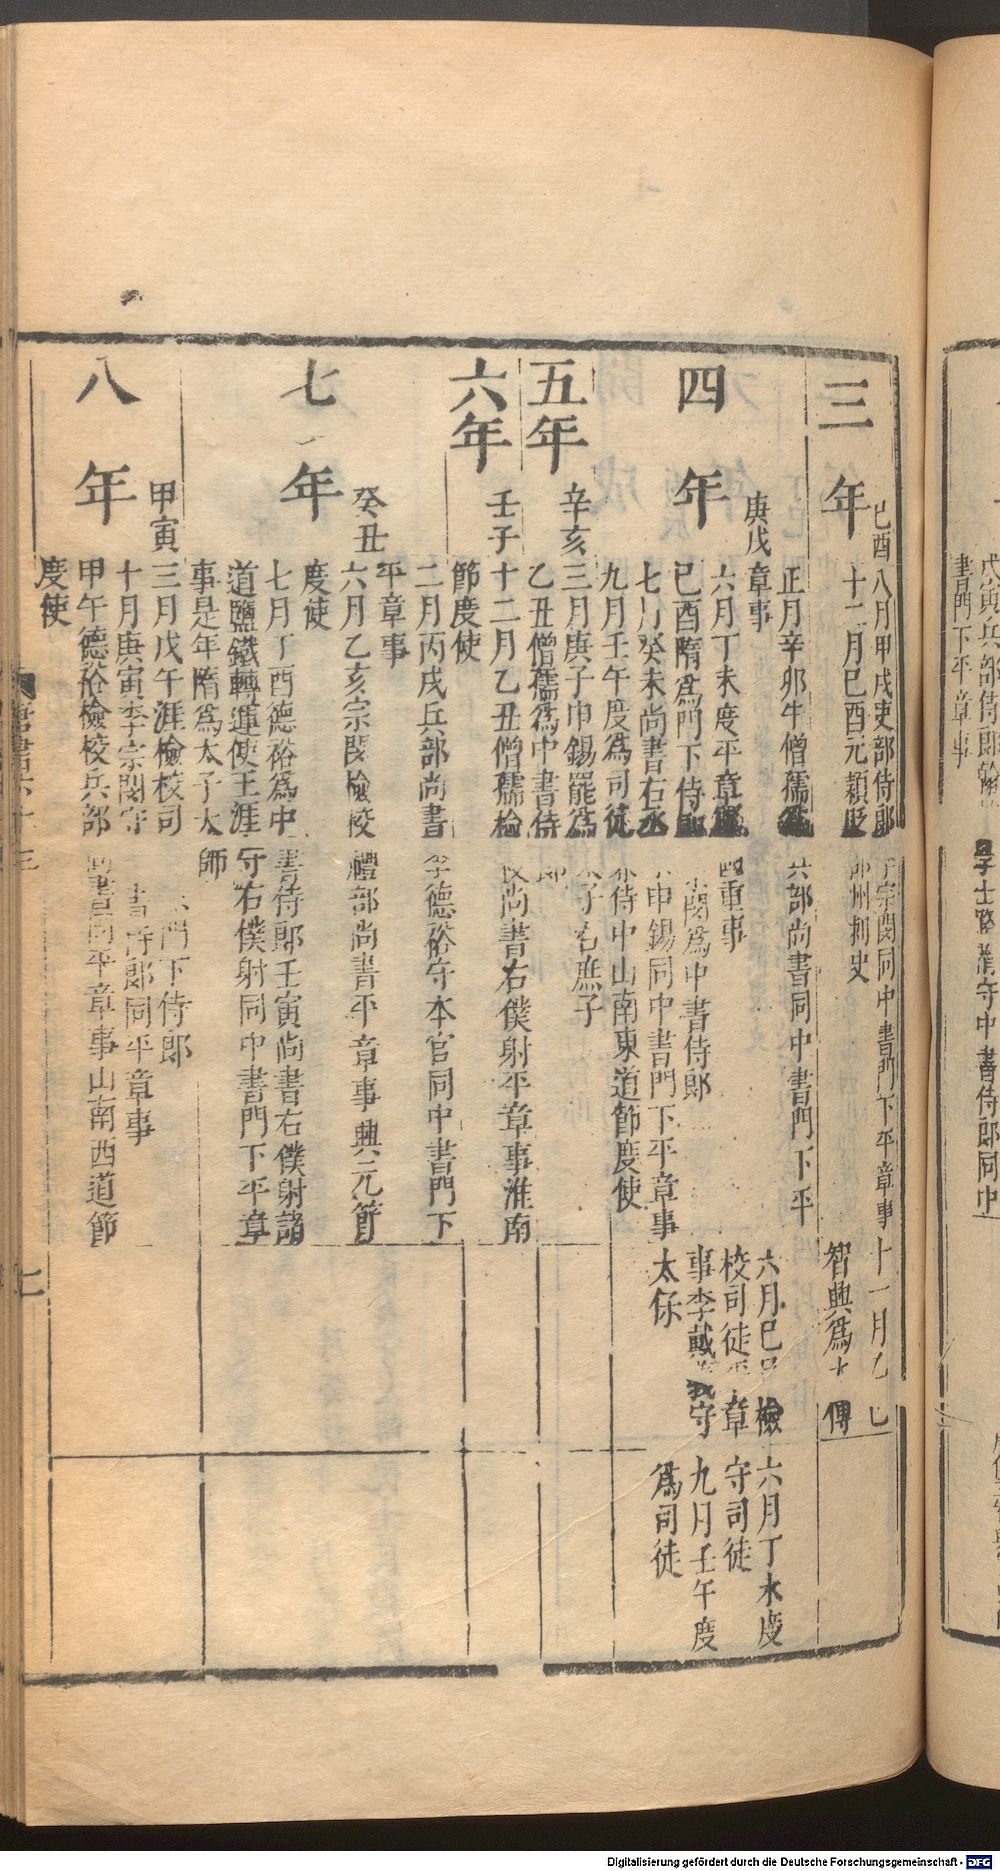 戊寅兵部侍郎
學士路隋守中書侍郎同中
書門下平章事
三年
己酉
八月甲戌吏部侍郎
宗閔同中書門下平章事
十二月己酉元穎貶
州刺史
十一月乙
智興爲
傅
四年
庚戌
正月辛卯牛僧孺爲
兵部尚書同中書門下平
章事
六月丁未度平章
重事
己酉隋爲門下侍郎
閔爲中書侍郎
七月癸未尚書右丞
申錫同中書門下平章事
九月壬午度爲司徒
侍中山南東道節度使
六月己
檢
校司徒
章
事李載義守
太保
六月丁未度
守司徒
九月壬午度
爲司徒
五年
辛亥
三月庚子申錫罷爲
子右庶子
乙丑僧孺爲中書侍
郎
六年
壬子
十二月乙丑僧孺檢
校尚書右僕射平章事淮南
節度使
七年
癸丑
二月丙戌兵部尚書
李德裕守本官同中書門下
平章事
六月乙亥宗閔檢校
禮部尚書平章事興元節
度使
七月丁酉德裕爲中
書侍郎壬寅尚書右僕射諸
道鹽鐵轉運使王涯
守右僕射同中書門下平章
事是年隋爲太子太
師
八年
甲寅
三月戊午涯檢校司
門下侍郎
十月庚寅李宗閔守
書侍郎同平章事
甲午德裕檢校兵部
尚書同平章事山南西道節
度使
七
Digitalisierung gefördert durch die Deutsche Forschungsgemeinschaft - DFG